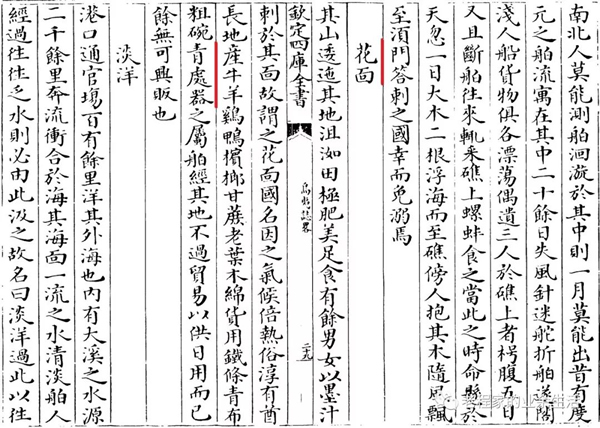 南北人莫能測舶洄漩於其中則一月莫能出昔有度
元之舶流寓在其中二十餘日失風針迷舵折舶遂閣
淺人船貨物俱各漂蕩偶遺三人於礁上者枵腹五日
又且斷舶往來輒采礁上螺蚌食之當此之時命懸於
天忽一日大木二根浮海而至礁傍人抱其木隨風飄
至湏門答剌之國幸而免溺焉
花面
其山逶迤其地沮洳田極肥美足食有餘男女以墨汁
欽定四庫全書
島夷誌畧
刺於其面故謂之花面國名因之氣候倍熱俗淳有酋
長地産牛羊鷄鴨檳榔甘蔗老葉木綿貨用鐵條青布
粗碗青處器之屬舶經其地不過貿易以供日用而已
餘無可興販也
淡洋
港口通官塲百有餘里洋其外海也内有大溪之水源
二千餘里奔流衝合於海其海面一流之水清淡舶人
經過往往乏水則必由此汲之故名曰淡洋過此以往